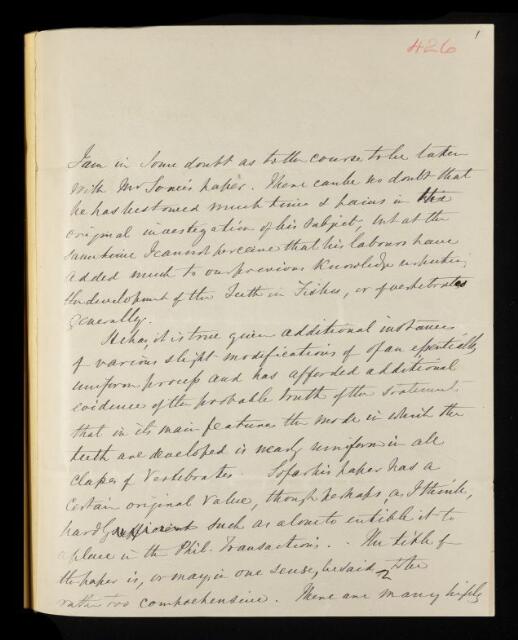 426
1
I am in some doubt as to the course to be taken
with Mr Tomes's paper. There can be no doubt that
he has bestowed much time & pains in the
original investigation of his subject, but at the
same time I cannot perceive that his labours have
added much to our previous knowledge respecting
the development of the Teeth in Fishes, or of vertebrates
generally.
He has, it is true given additional instances
of various slight modifications of of an essentially
uniform process and has afforded additional
evidence of the probable truth of the statement
that in its main features the mode in which the
teeth are developed is nearly uniform in all
classes of Vertebrates. So far his paper has a
certain original value, though perhaps, as I think,
hardly sufficient such as alone to entitle it to
a place in the Phil. Transactions. - The title of
the paper is, or may, in one sense, be said to be
rather too comprehensive. There are many highly